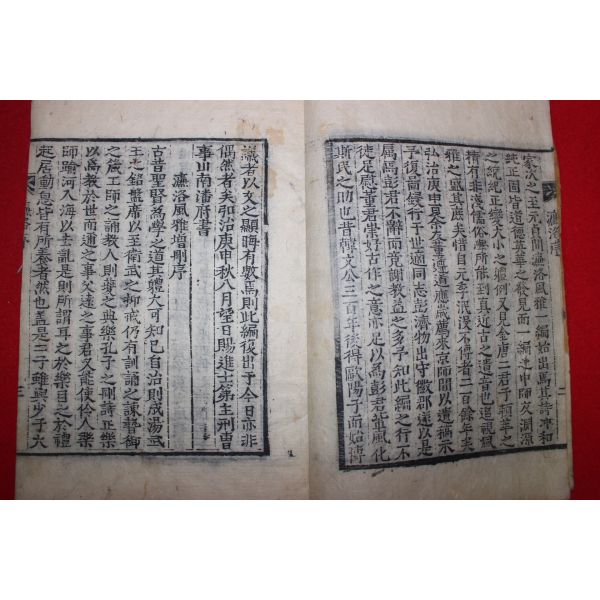 家次之至元百間濂洛風雅一編始出焉其詩冲和
純正固皆道德英華之發見而一編之中師友淵源
之統紀正變大小之體例又見金唐二君子精萃之
精有非淺儒俗學所能到真近古之遺音也視風
雅之盛其庶矣惜自元至泯沒不傳者二百餘年矣
弘治庚申良余友董遵道應薦來京師間以遺稿示
予復齋錢行于世適同志彭濟物出守徽郡遂以是
属焉彭君不辭而竟謝教益之多予知此編之行不
徒足慰董君崇好古作之意亦足以為彭君宣風化
斯民之助也昔韓文公三百年後得歐陽子而始傳
識者以文之顯晦有數焉則此編復出于今日亦非
偶然者矣弘治庚申秋八月望日賜進士第主刑曹
事山南潘府書
濂洛風雅增刪序
古昔聖賢為學之道其體大可知已自治則成湯武
王之銘盤席以至衛武之抑戒仍有訓誦之諫瞽御
之箴工師之誦教人則夔之典樂孔子之刪詩正樂
以為教於世而通之事君又達之事父能使伶人樂
師踰河入海以去亂是則所謂耳之於樂目之於禮
起居動息皆有所養者然也盖是二子雖與少子六